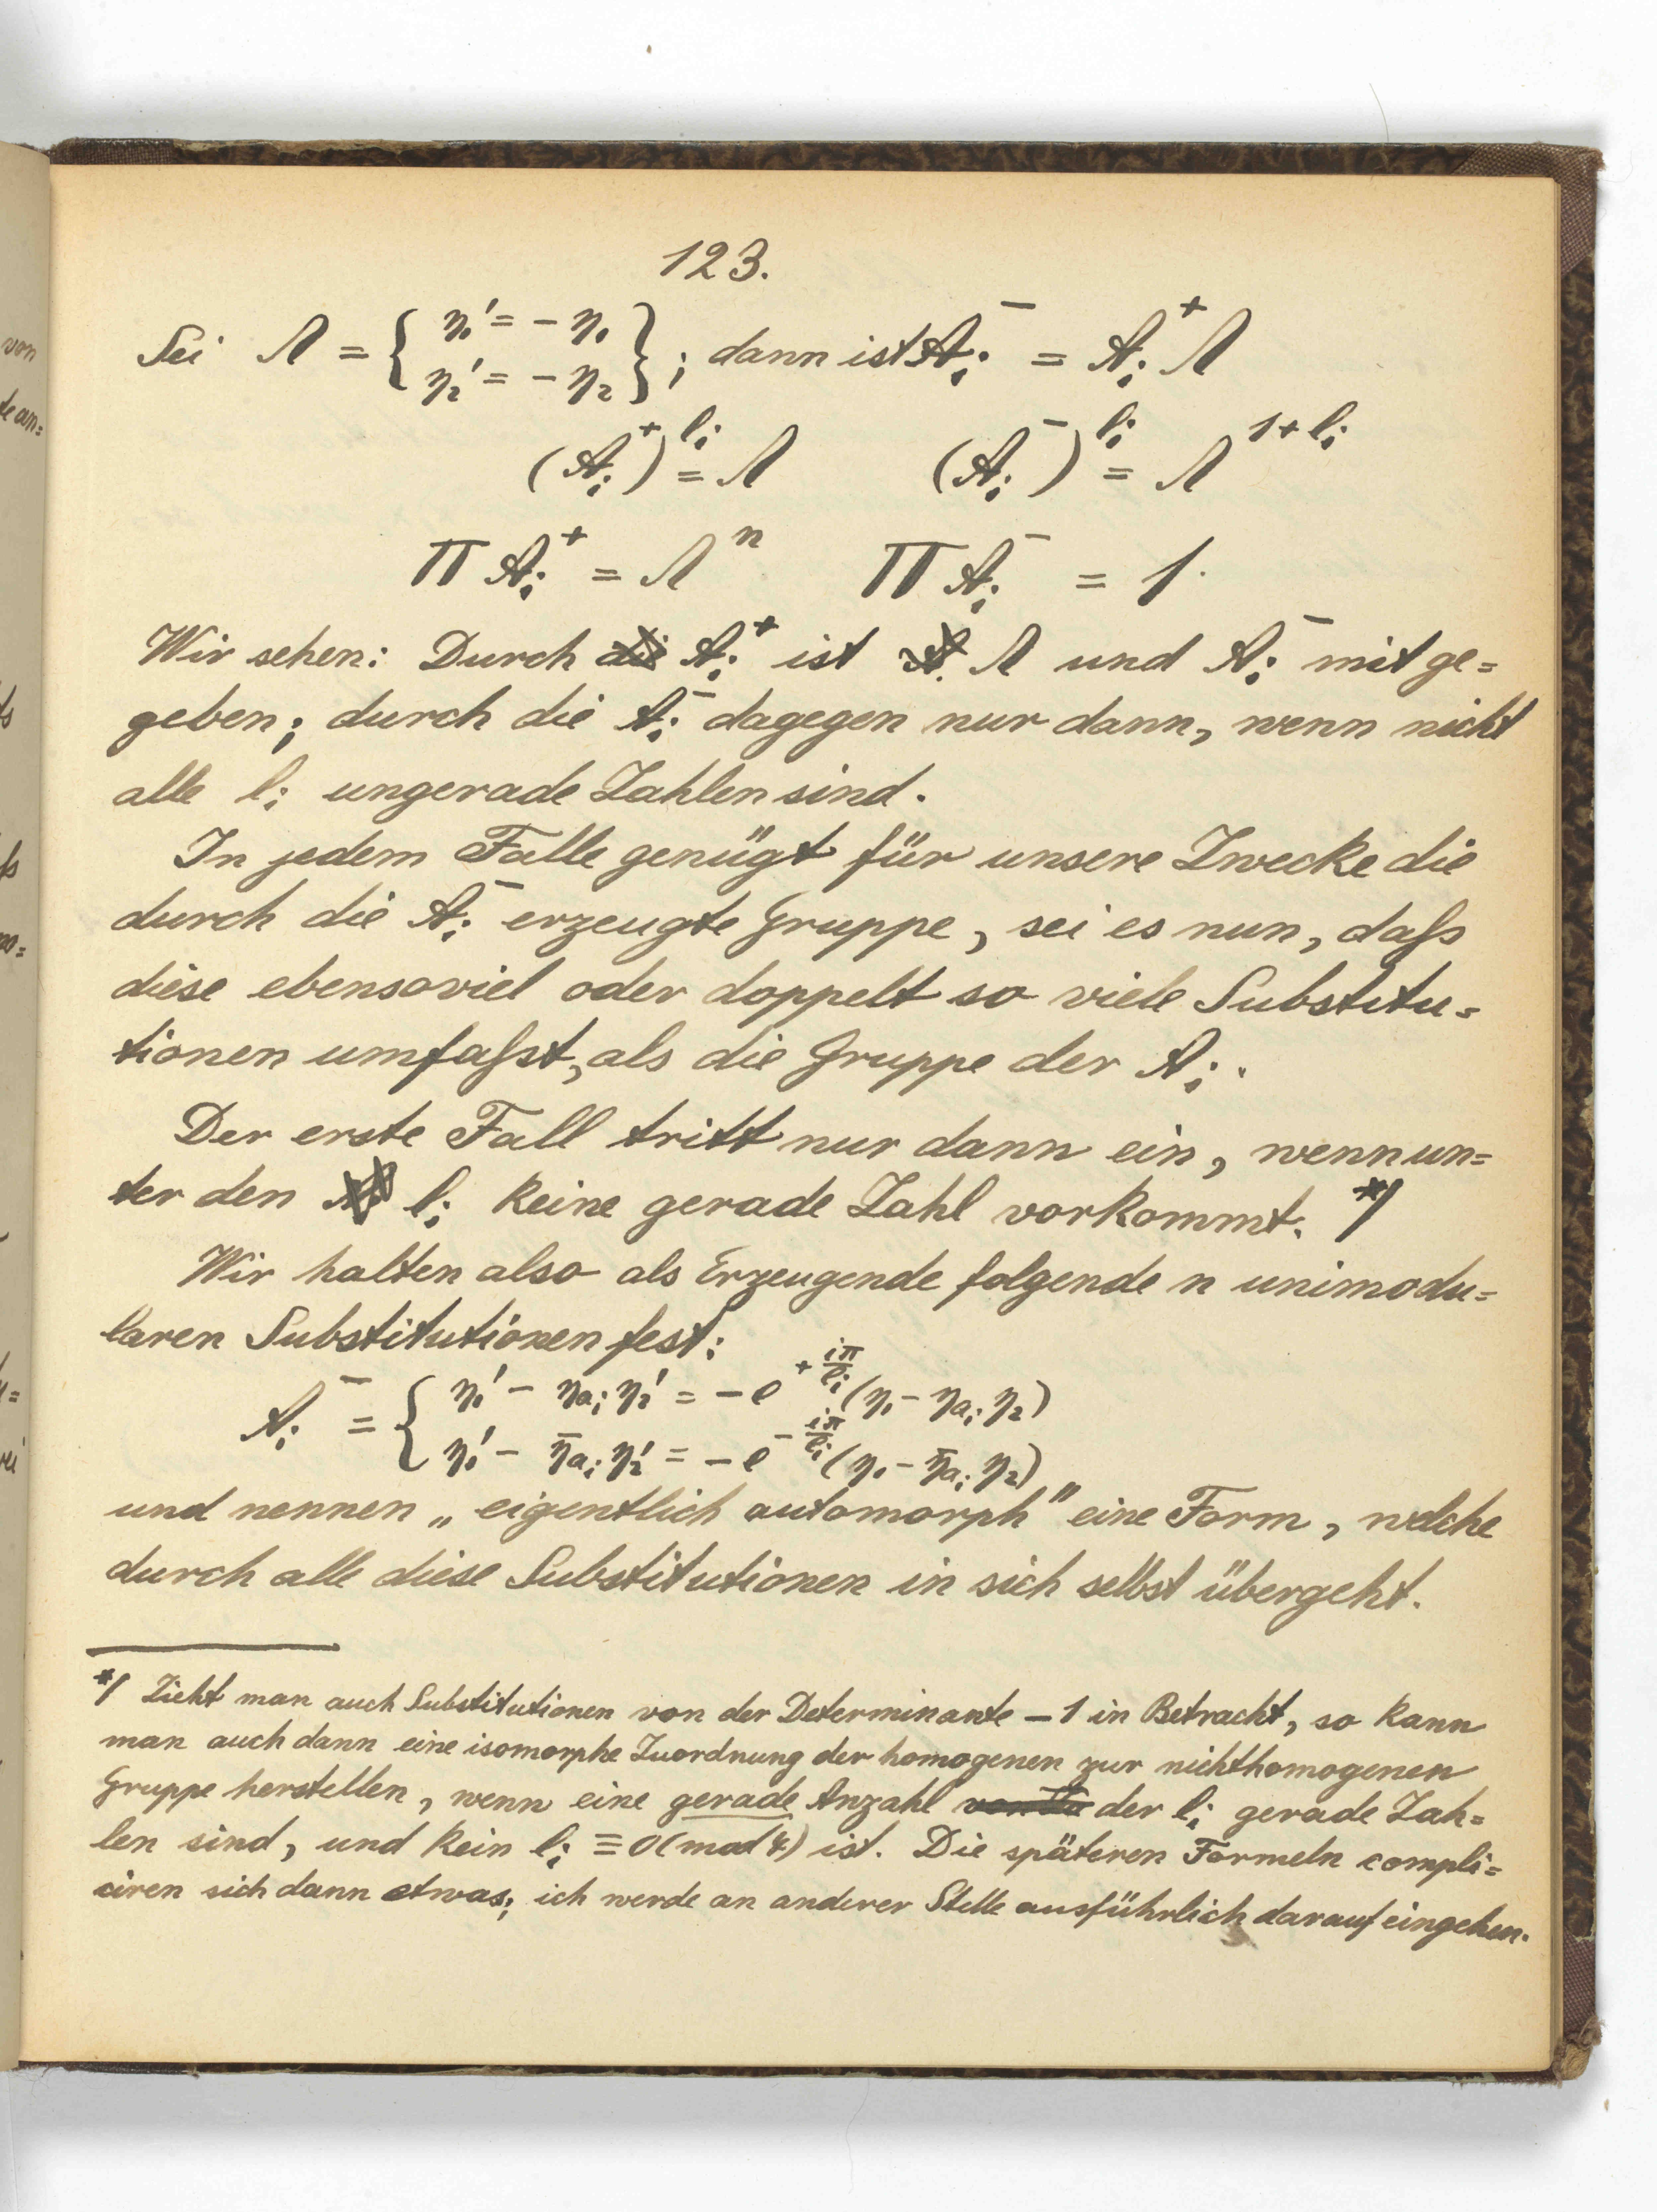 123.
Sei Λ = { η₁' = − η₁ η₂' = − η₂ } ; dann ist A̅ᵢ = A⁺ᵢ Λ
(A⁺ᵢ)^lᵢ = Λ (A⁻ᵢ)^lᵢ = Λ^1+lᵢ
Π A⁺ᵢ = Λⁿ Π A⁻ᵢ = 1.
Wir sehen: Durch die A⁺ᵢ ist Λ und A⁻ᵢ mit ge=
geben; durch die A⁻ᵢ dagegen nur dann, wenn nicht
alle lᵢ ungerade Zahlen sind.
In jedem Falle genügt für unsere Zwecke die
durch die A⁻ᵢ erzeugte Gruppe, sei es nun, daſs
diese ebensoviel oder doppelt so viele Substitu=
tionen umfaſst, als die Gruppe der Aᵢ.
Der erste Fall tritt nur dann ein, wenn un=
ter den lᵢ keine gerade Zahl vorkommt. *)
Wir halten also als Erzeugende folgende n unimodu=
laren Substitutionen fest:
A⁻ᵢ = { η₁' − ηaᵢ η₂' = − e^{+ iπ/lᵢ} (η₁ − ηaᵢ η₂)
η₁' − η̅aᵢ η₂' = − e^{− iπ/lᵢ} (η₁ − η̅aᵢ η₂)
und nennen „eigentlich automorph" eine Form, welche
durch alle diese Substitutionen in sich selbst übergeht.
*) Zieht man auch Substitutionen von der Determinante −1 in Betracht, so kann
man auch dann eine isomorphe Zuordnung der homogenen zur nichthomogenen
Gruppe herstellen, wenn eine gerade Anzahl der lᵢ gerade Zah=
len sind, und kein lᵢ ≡ 0 (mod 4) ist. Die späteren Formeln compli=
ciren sich dann etwas; ich werde an anderer Stelle ausführlich darauf eingehen.